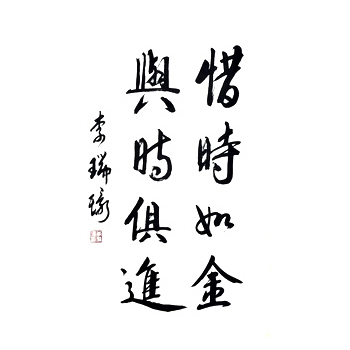 惜時如金
與時俱進
李瑞環